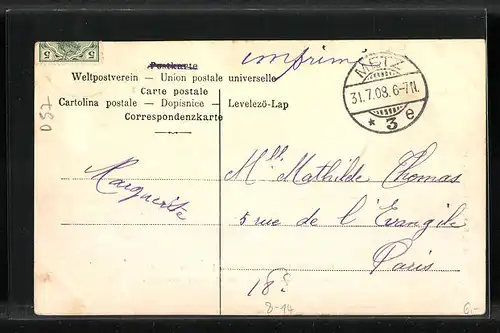 5 5
Postkarte
imprimé
Weltpostverein — Union postale universelle
Carte postale
Cartolina postale — Dopisnice — Levelező-Lap
Correspondenzkarte
METZ
31.7.08. 6-7N.
* 3 e
D 57
Marguerite
Mlle Mathilde Thomas
5 rue de l'Evangile
Paris
18e
8-14
6.-